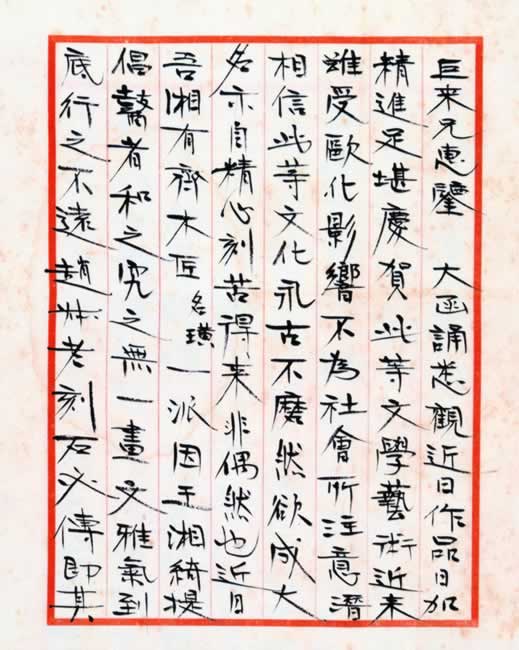 巨来兄惠鑒 大函誦悉觀近日作品日加
精進足堪慶賀此等文學藝術近来
雖受歐化影響不為社會所注意潛
相信此等文化永古不磨然欲成大
名亦自精心刻苦得来非偶然也近日
吾湘有齊木匠名璜一派因王湘綺提
倡者和之究之無一畫文雅氣到
底行之不遠趙叔老刻石必傳即其